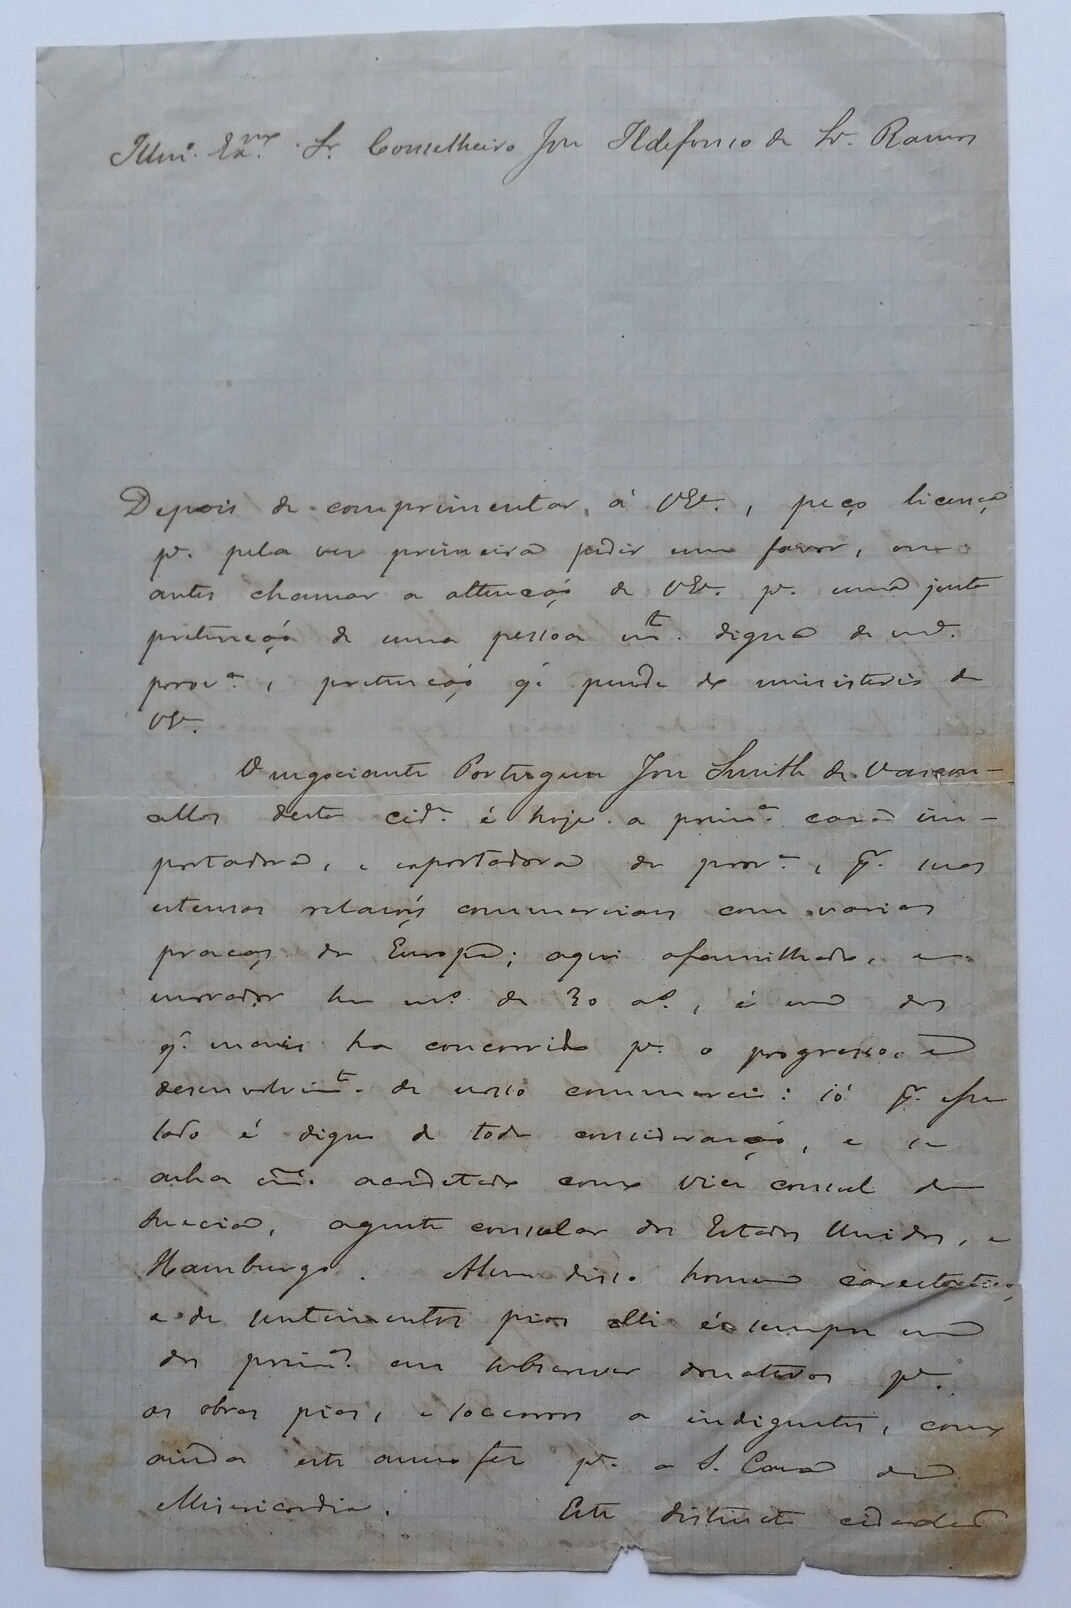 Illmº. Exmº. Sr. Conselheiro José Ildefonso de Sz. Ramos
Depois de comprimentar, á VEx., peço licença
pª. pela vez primeira pedir um favor, ou
antes chamar a attenção de VEx. pª. uma justa
pretenção de uma pessoa mt. digna de mª.
provª., pretenção q' pende do ministerio de
VEx.
O negociante Portuguez José Smith de Vascon-
cellos desta cidª. é hoje a primª. casa im-
portadora, e exportadora da provª., pr. suas
extensas relações commerciaes com varias
praças da Europa; aqui afamilhado, e
morador ha mº. de 30 aº., é um dos
q' mais ha concorrido pª. o progresso, e
desenvolvimt. de nosso commercio: só pr. esse
lado é digno de toda consideração, e se
acha acreditado como vice consul da
Suecia, agente consular dos Estados Unidos, e
Hamburgo. Alem disso homem caritativo,
e de sentimentos pios elle é sempre um
dos primrº. em subscrever donativos pª.
as obras pias, e soccorros a indigentes, como
ainda este anno fez pª. a S. Casa da
Misericordia. Este distincto cidadão